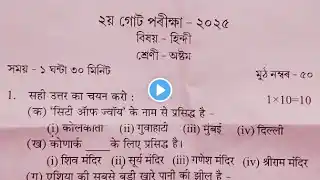 ২য় গোট পৰীক্ষা - ২০২৫
विषय - हिन्दी
শ্ৰেণী - অষ্টম
সময় - ১ ঘন্টা ৩০ মিনিট মুঠ নম্বৰ - ৫০
1. सही उत्तर का चयन करो : 1×10=10
(क) 'सिटी ऑफ ज्वॉय' के नाम से प्रसिद्ध है -
(i) कोलकाता (ii) गुवाहाटी (iii) मुंबई (iv) दिल्ली
(ख) कोणार्क ___ के लिए प्रसिद्ध है।
(i) शिव मंदिर (ii) सूर्य मंदिर (iii) गणेश मंदिर (iv) श्रीराम मंदिर
(ग) एशिया की सबसे बड़ी खारे पानी की झील है -